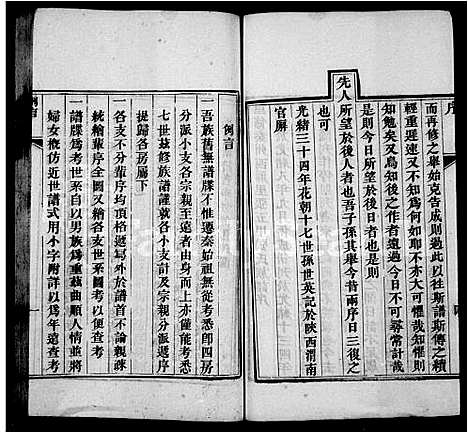 序
而再修之舉始克告成則過此以往斯譜斯傳之續
輕重遲速又不知爲何如耶不亦大可懼哉知懼則
知勉矣又烏知後之作者遠過今日不可幾常計哉
是則今日所望於後人者也是則
先人所望於後人者也吾子孫其舉今昔兩序日三復之
也可
光緒三十四年花朝十七世孫世英記於陝西渭南
官廨
例言
例言
一吾族舊無譜牒不惟遷秦始祖無從考悉卽四房
分派小支各宗親至遠者由上亦僅能考悉
七世茲修族譜謹就各小支計及宗親分派遞序
提歸各房屬下
一各支不分輩序均頂格遞寫外於譜首不論親疎
統繪輩序全圖又繪各支世系圖考以便查考
一譜牒爲考世系自以男族爲重茲曲順人情並將
婦女槪仿近世譜式用小字附詳以爲年遠查考